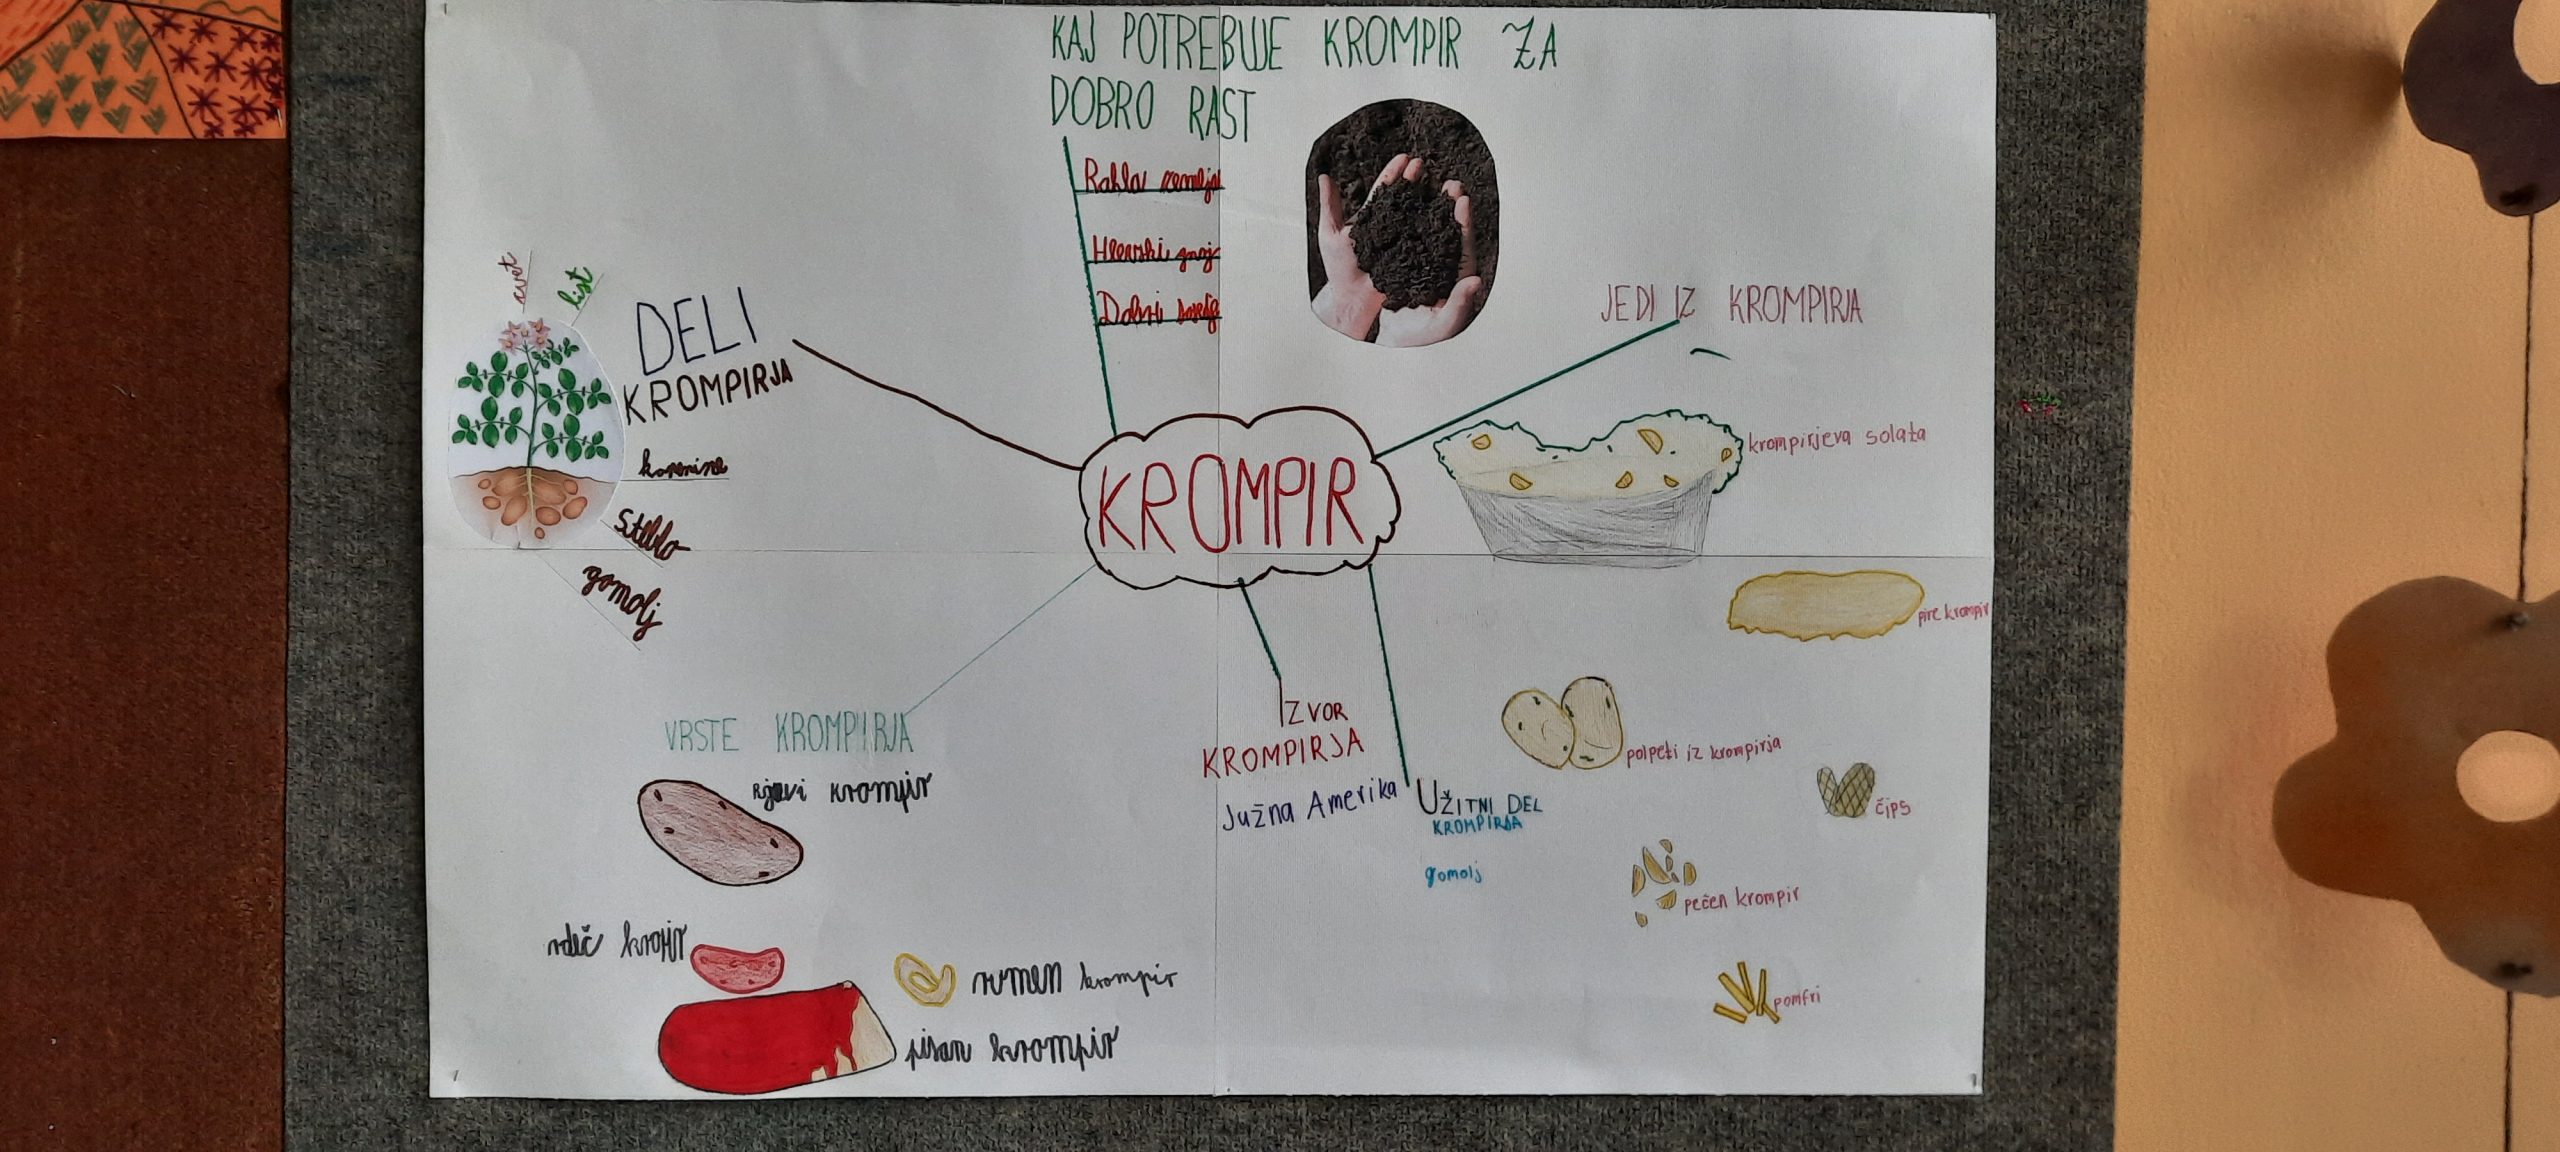 KAJ POTREBUJE KROMPIR ZA
DOBRO RAST
Rahla zemlja
Hlevski gnoj
Dobri sosedje
cvet
list
DELI
KROMPIRJA
korenine
Steblo
gomolj
JEDI IZ KROMPIRJA
krompirjeva solata
pire krompir
polpeti iz krompirja
čips
pečen krompir
pomfri
KROMPIR
IZVOR
KROMPIRJA
Južna Amerika
UŽITNI DEL
KROMPIRJA
gomolj
VRSTE KROMPIRJA
Rjavi krompir
rdeč
rumen krompir
pisan krompir